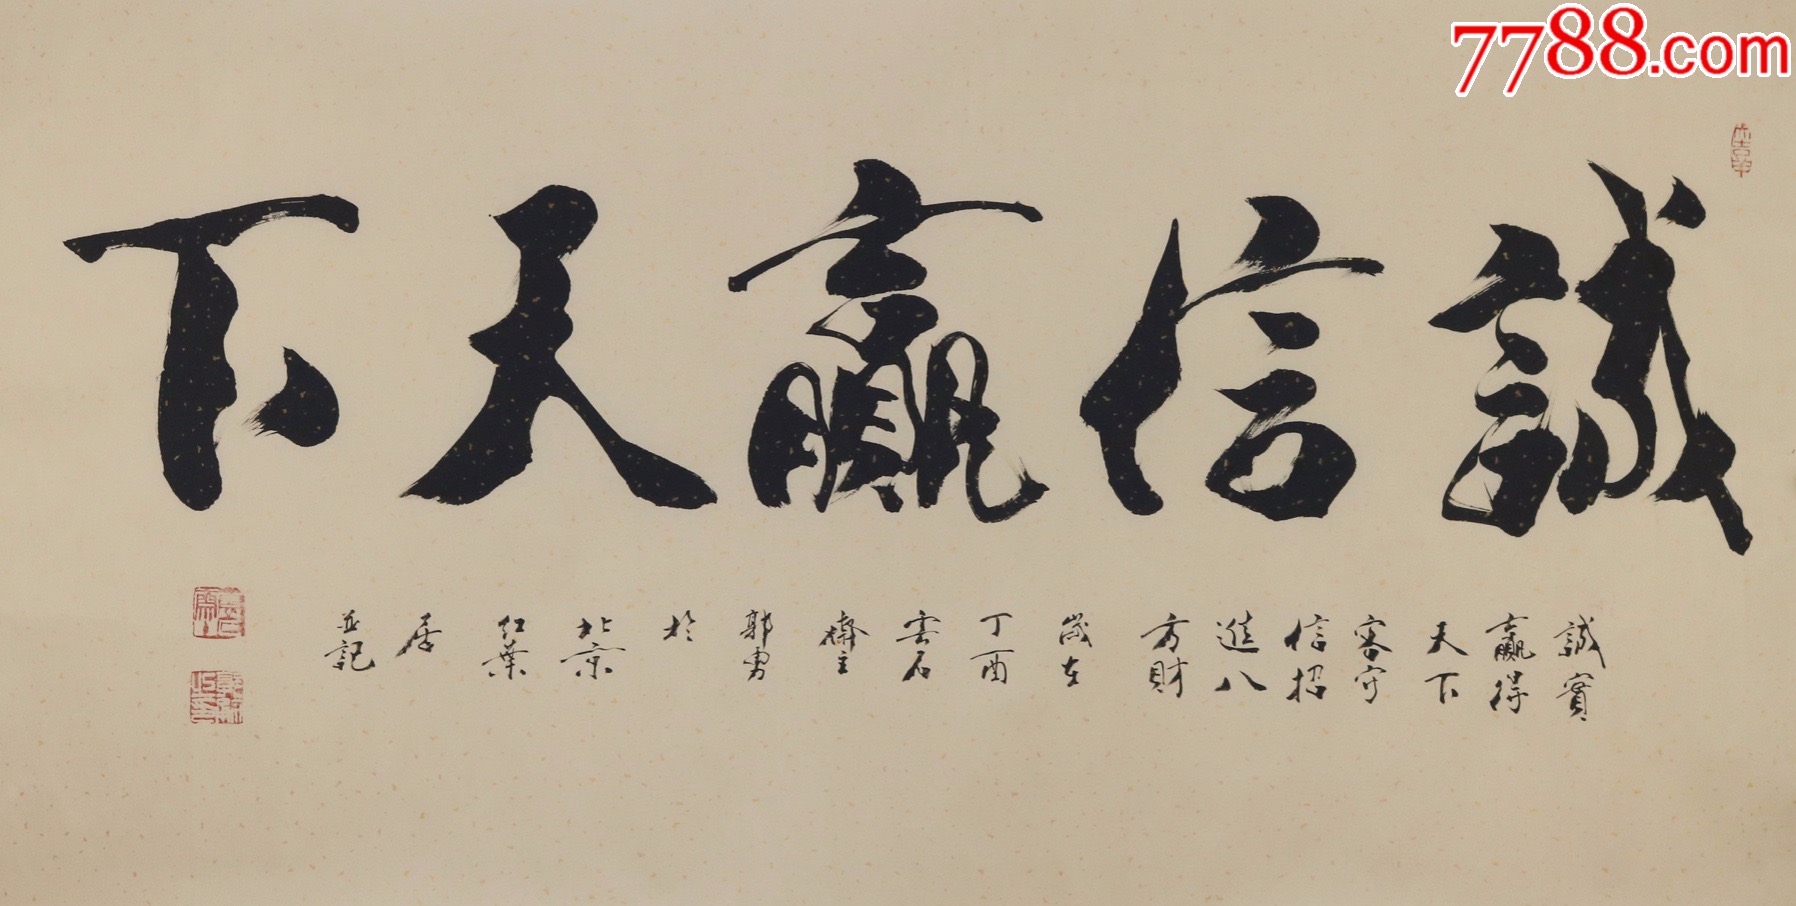 7788.com
誠信贏天下
誠實
贏得
天下
客守
信招
進八
方財
歲在
丁酉
雲石
齋主
郭勇
於
北京
紅葉
居
並記